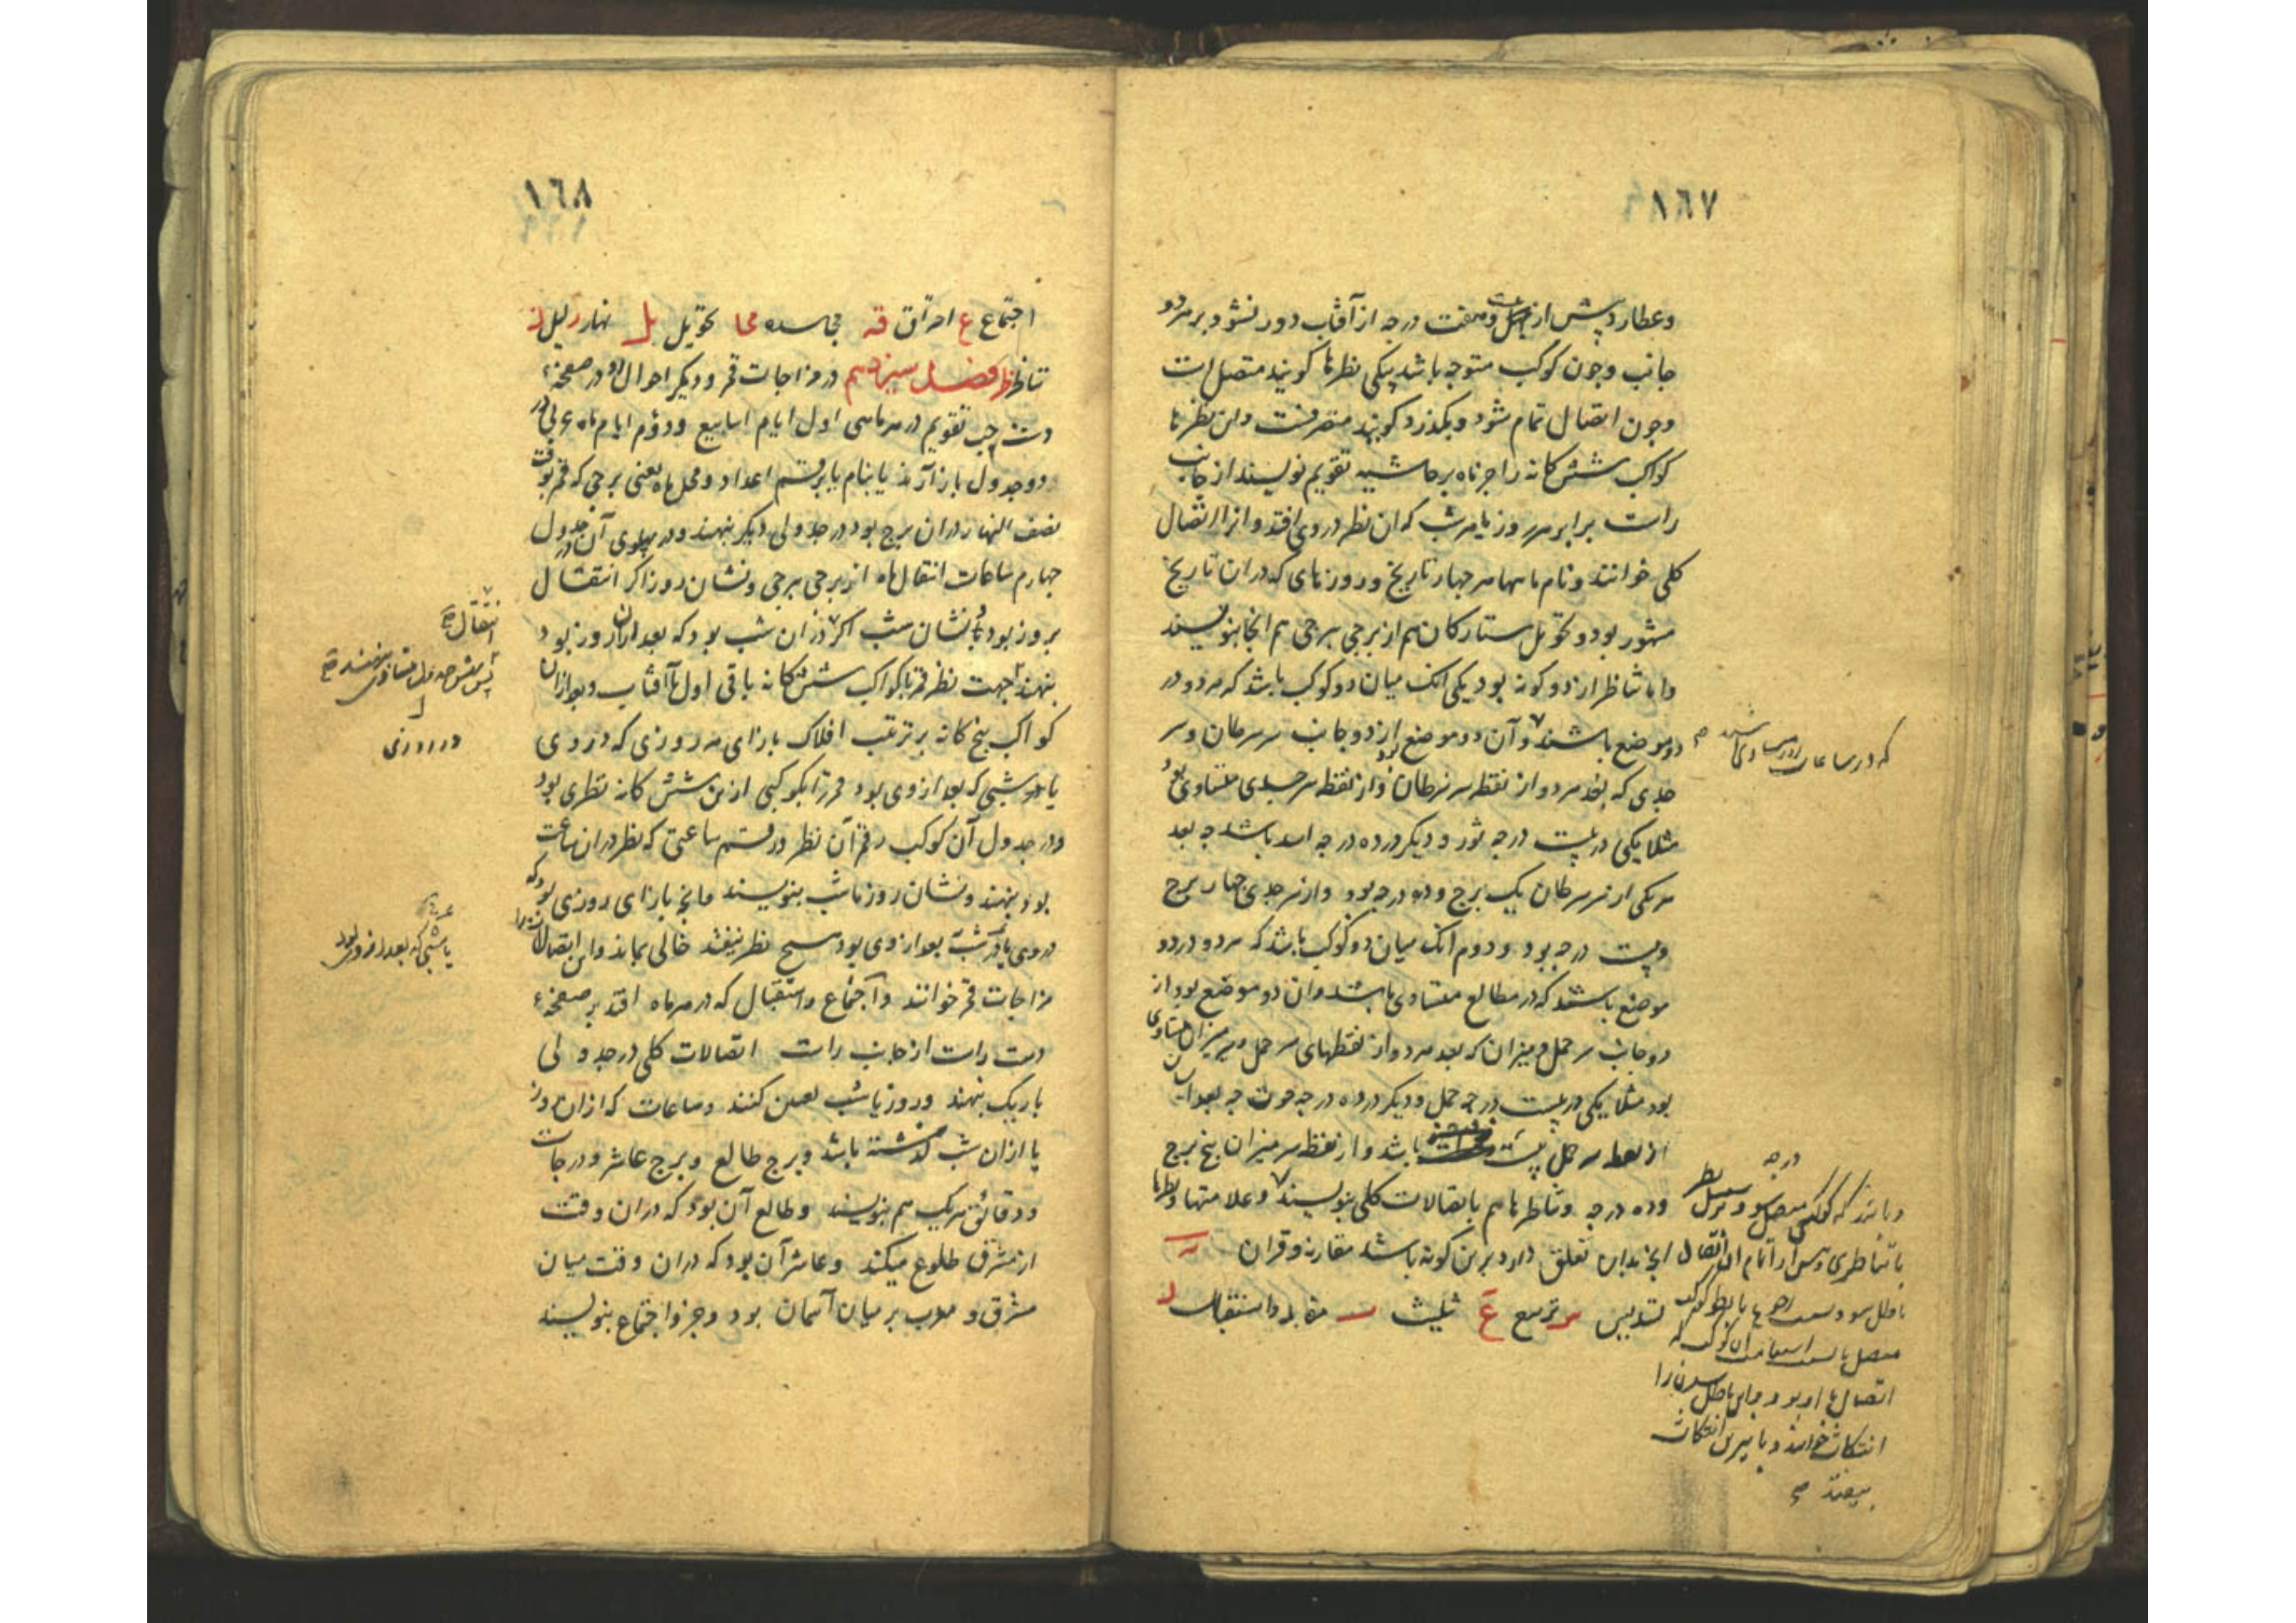 ١٦٧
وعطارد بیش از بیست وهفت درجه از آفتاب دور نشود بر هر دو
جانب وچون کوکب متوجه باشد بیکی نظرها کویند متصل است
وچون اتصال تمام شود وبکذرد کویند منصرفست واین نظرها
کواکب ششکانه را هر ماه بر حاشیه تقویم نویسند از جانب
راست برابر هر روز یا هر شب که ان نظر در وی افتد وانرا اتصال
کلی خوانند ونام ماهها هر چهار تاریخ وروزهای که دران تاریخ
مشهور بود وتحویل ستارکان هم از برجی ببرجی هم انجا بنویسند
واما تناظر از دو کونه بود یکی انک میان دو کوکب باشد که هر دو در
دو موضع باشند وآن دو موضع از دو جانب سر سرطان وسر
جدی که بعد هر دو از نقطه سر سرطان واز نقطه سر جدی متساوی بود
مثلا یکی در بیست درجه ثور ودیکر در ده درجه اسد باشد چه بعد
هر یکی از سر سرطان یک برج وده درجه بود واز سر جدی چهار برج
وبیست درجه بود ودوم انک میان دو کوکب باشد که هر دو در دو
موضع باشند که در مطالع متساوی باشند وان دو موضع بود از
دو جانب سر حمل ومیزان که بعد هر دو از نقطهای سر حمل وسر میزان متساوی
بود مثلا یکی در بیست درجه حمل ودیکر در ده درجه حوت چه بعد ایشان
از نقطه سر حمل بیست باشد واز نقطه سر میزان پنج برج
وده درجه وتناظرها هم با اتصالات کلی بنویسند وعلامتها ونظرها
انچ بدان تعلق دارد برین کونه باشد مقارنه وقران
تسدیس س تربیع ع تثلیث مقابله واستقبال ل
که در ساعات روز متساوی باشند
درجه
اتصال با او بود واین باطل شدن را
انتکاث خوانند
١٦٨
اجتماع ع احتراق قه مجاسده مجا تحویل ل نهار ر لیل ل
تناظر ظر فصل سیزدهم در مزاجات قمر ودیکر احوال او در صفحه
دست چپ تقویم در هر ماهی اول ایام اسابیع ودوم ایام ماه عربی در
دو جدول باز آرند یا بنام یا برقم اعداد ومحل ماه یعنی برجی که قمر بوقت
نصف النهار دران برج بود در جدولی دیکر بنهند ودر پهلوی آن در جدول
چهارم ساعات انتقال ماه از برجی ببرجی ونشان روز اکر انتقال
بروز بود ونشان شب اکر دران شب بود که بعد ازان روز بود
بنهند جهت نظر قمر با کواکب ششکانه باقی اول با آفتاب وبعد ازان
کواکب پنج کانه بر ترتیب افلاک بازای هر روزی که در وی
یا در شبی که بعد از وی بود قمر را بکوکبی ازین شش کانه نظری بود
ودر جدول آن کوکب رقم آن نظر ورقم ساعتی که نظر دران ساعت
بود بنهند ونشان روز یا شب بنویسند وانچ بازای روزی بود که
در وی یا در شب بعد از وی بود هیچ نظر نیفتد خالی بماند واین اتصالات را
مزاجات قمر خوانند واجتماع واستقبال که در هر ماه افتد بر صفحه
دست راست از جانب راست اتصالات کلی در جدولی
باریک بنهند وروز یا شب تعیین کنند وساعات که ازان روز
یا ازان شب کذشته باشد وبرج طالع وبرج عاشر ودرجات
ودقائق هر یک هم بنویسند وطالع آن بود که دران وقت
از مشرق طلوع میکند وعاشر آن بود که دران وقت میان
مشرق ومغرب بر میان آسمان بود وجزو اجتماع بنویسند
انتقال
در روزی
یا شبی که بعد از و بود